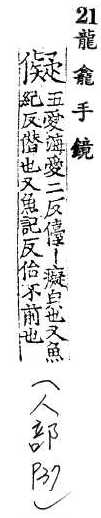 21 龍龕手鏡
儗
五愛海愛二反儓丨癡皃也又魚
紀反僣也又魚記反佁不前也
（人部P37）